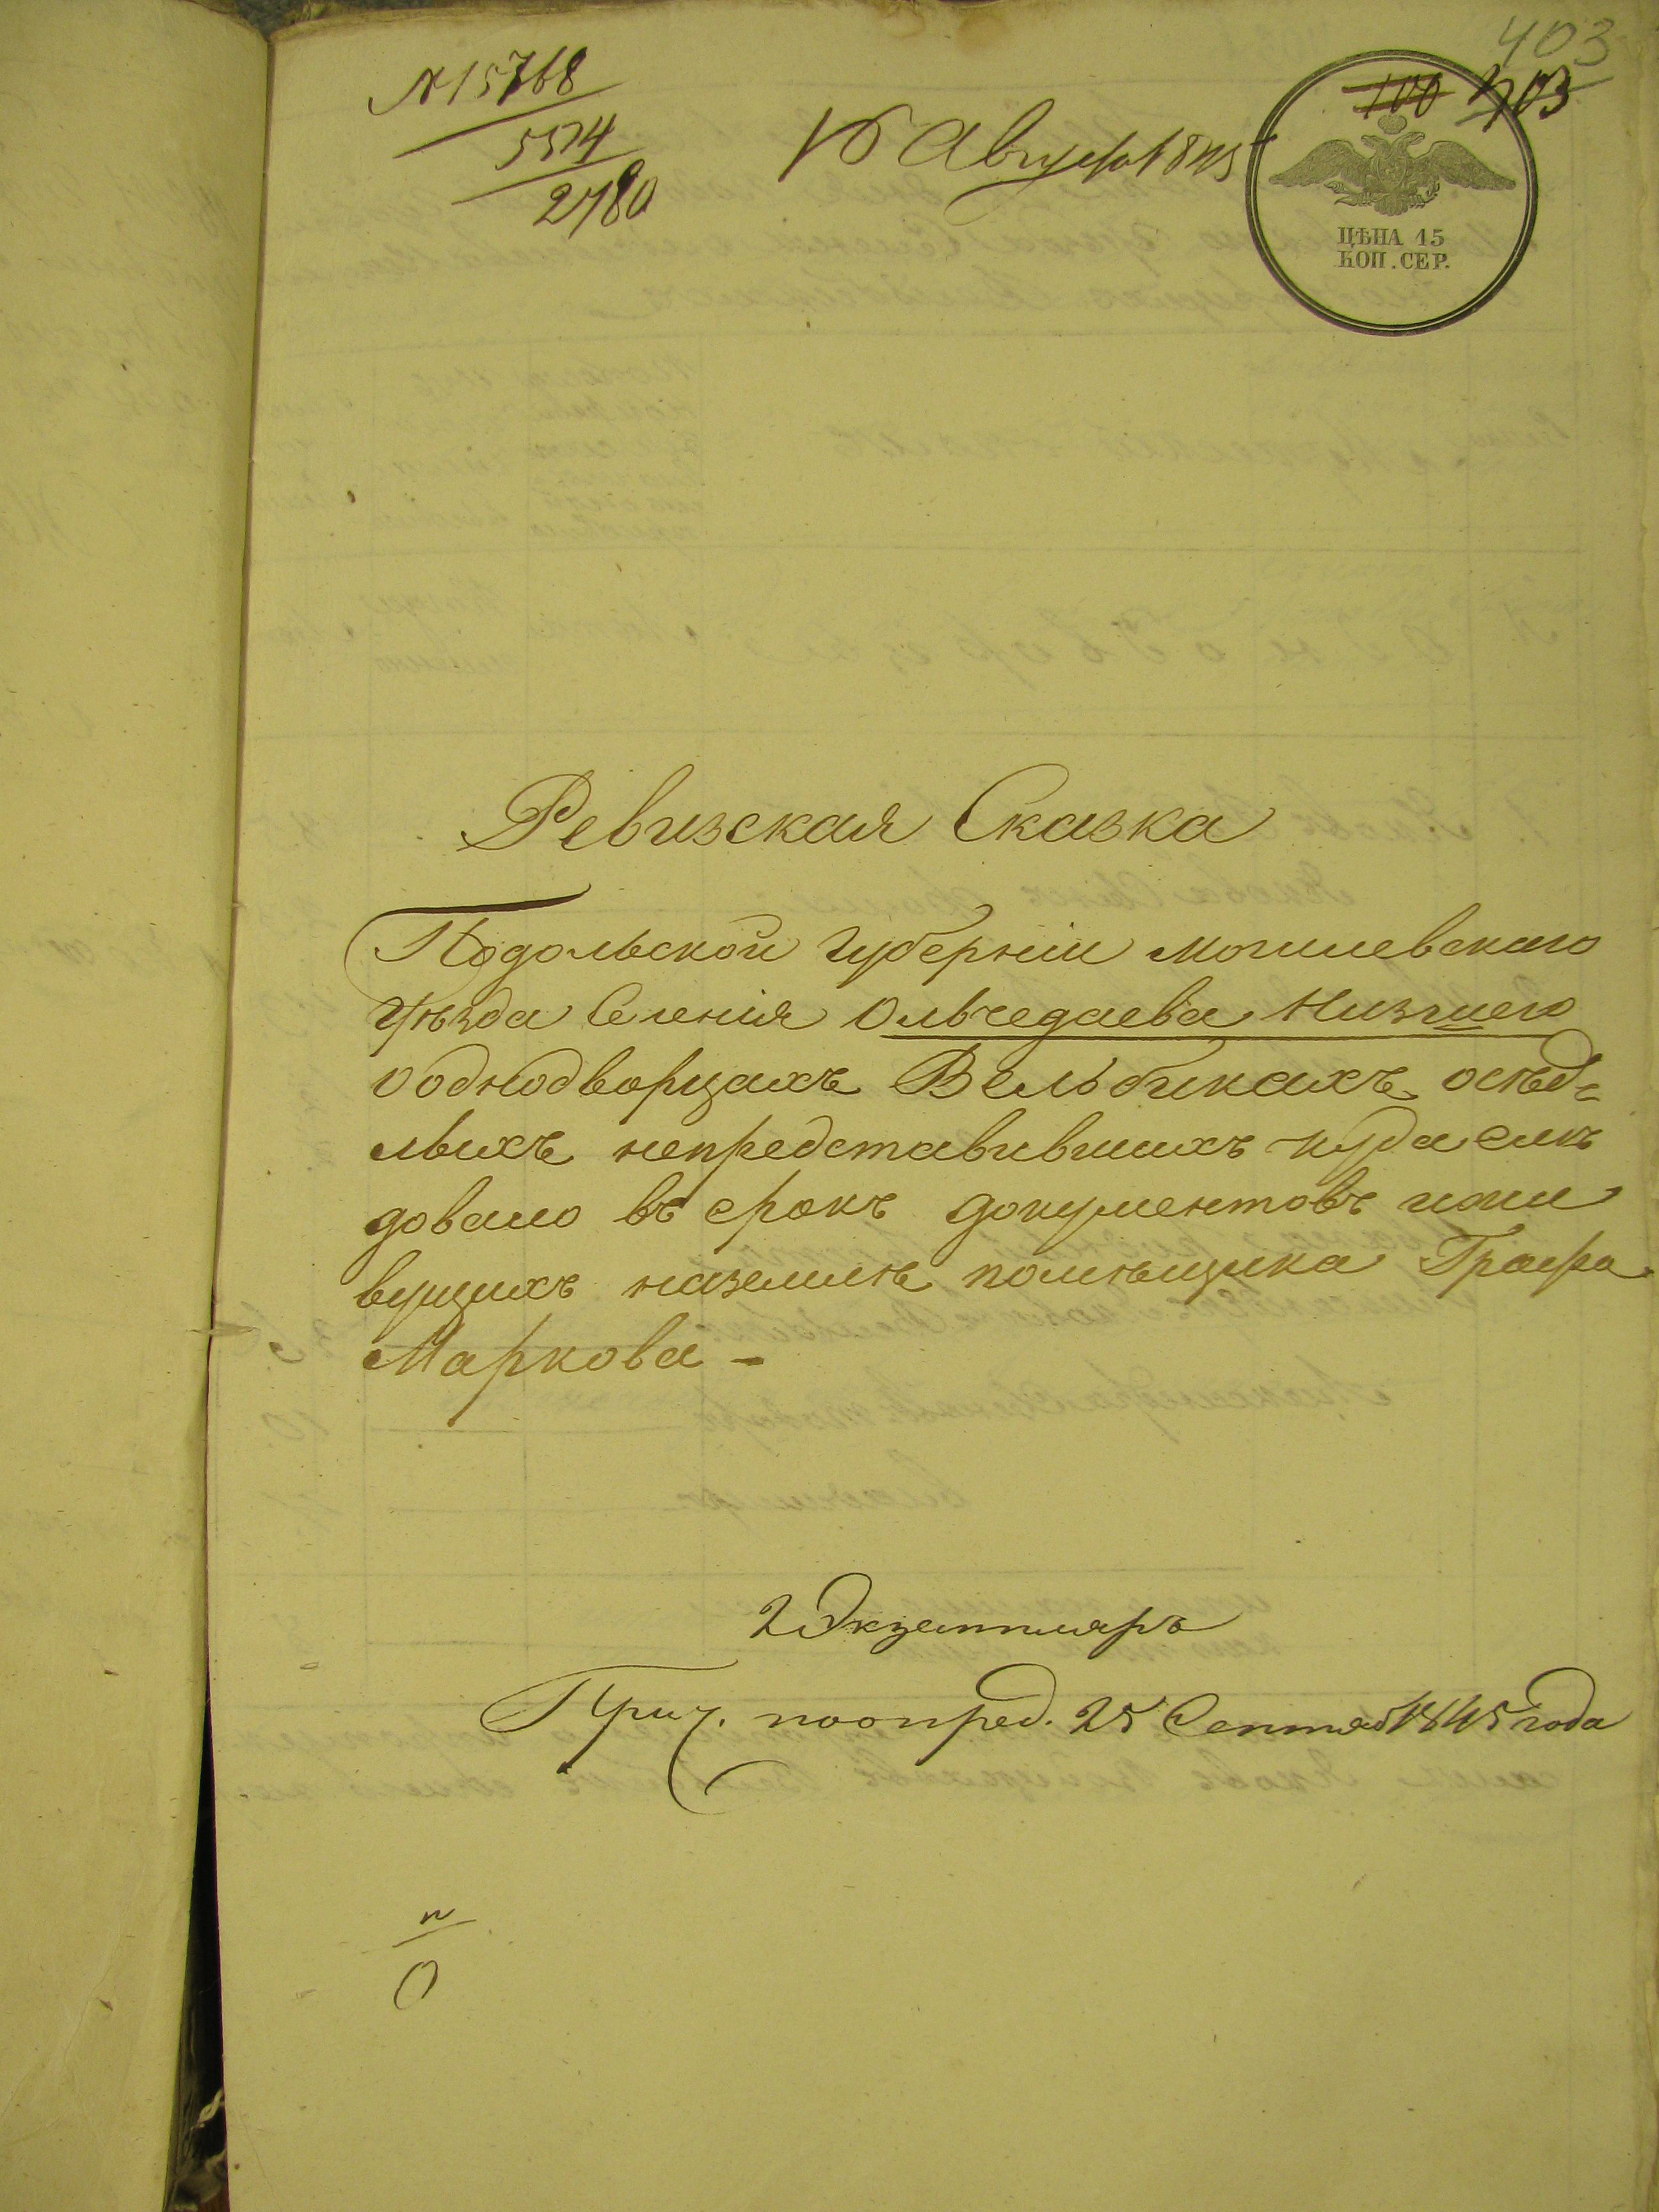 403
100 403
№ 15768
5574
2780
16 Августа 1845
ЦѢНА 15
КОП. СЕР.
Ревизская Сказка
Подольской Губерніи Могилевскаго
Уѣзда Селенія Ольчедаева Низшего
О однодворцахъ Вельбикахъ осѣд-
лыхъ непредставившихъ куда слѣ
довало въ срокъ документовъ и жи
вущихъ на землѣ помѣщика Графа
Маркова -
2 Экземпляръ
Прич. по опред. 25 Сентяб 1845 года
0